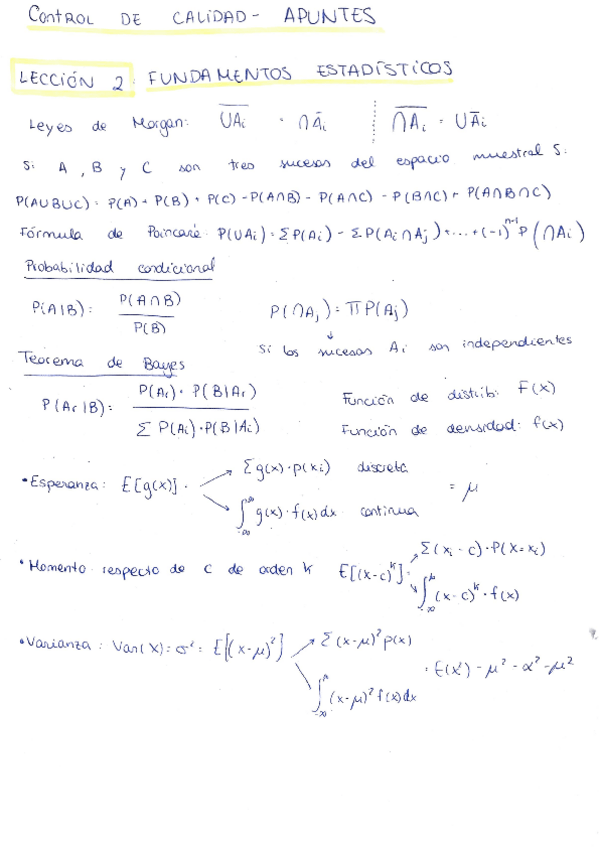 CONTROL DE CALIDAD - APUNTES
LECCIÓN 2: FUNDAMENTOS ESTADÍSTICOS
Leyes de Morgan: \overline{∪Ai} = ∩Āi \overline{∩Ai} = ∪Āi
Si A, B y C son tres sucesos del espacio muestral S:
P(A∪B∪C) = P(A) + P(B) + P(C) - P(A∩B) - P(A∩C) - P(B∩C) + P(A∩B∩C)
Fórmula de Poincaré: P(∪Ai) = ΣP(Ai) - ΣP(Ai∩Aj) + ... + (-1)^{n-1} P(∩Ai)
Probabilidad condicional
P(A|B) = P(A∩B) / P(B) P(∩Aj) = ΠP(Aj)
↓
Si los sucesos Ai son independientes
Teorema de Bayes
P(Ar|B) = P(Ar) · P(B|Ar) / Σ P(Ai)·P(B|Ai)
Función de distrib: F(x)
Función de densidad: f(x)
• Esperanza: E[g(x)] = Σg(x)·p(xi) discreta
∫_{-∞}^{∞} g(x)·f(x)dx continua
= μ
• Momento respecto de c de orden k E[(x-c)^k] = Σ(xi - c)·P(X=xi)
∫_{-∞}^{∞} (x-c)^k · f(x)
• Varianza: Var(X) = σ² = E[(x-μ)²] Σ(x-μ)² p(x)
∫_{-∞}^{∞} (x-μ)² f(x)dx
= E(x²) - μ² = α² - μ²